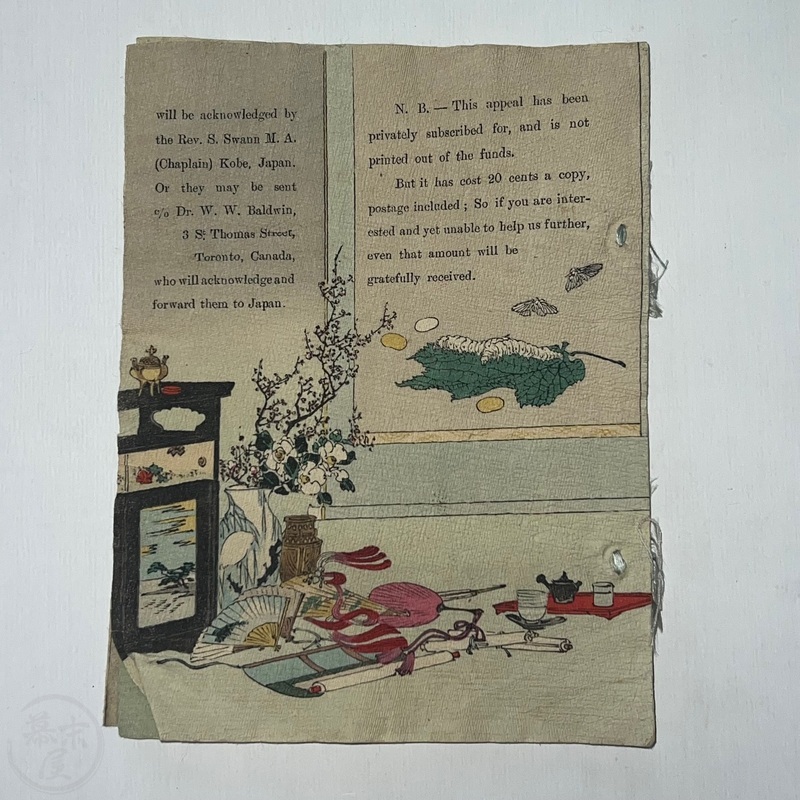 will be acknowledged by
the Rev. S. Swann M. A.
(Chaplain) Kobe, Japan.
Or they may be sent
c/o Dr. W. W. Baldwin,
3 St Thomas Street,
Toronto, Canada,
who will acknowledge and
forward them to Japan.
N. B. — This appeal has been
privately subscribed for, and is not
printed out of the funds.
But it has cost 20 cents a copy,
postage included ; So if you are inter-
ested and yet unable to help us further,
even that amount will be
gratefully received.
幕末屋